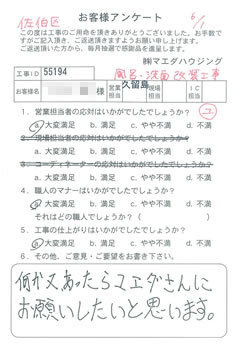 佐伯区
お客様アンケート
6/1
この度は工事のご用命を頂きありがとうございました。お手数で
すがご記入頂き、ご返送頂きますようお願い申し上げます。
ご返送頂いた方から、毎月抽選で感謝品を進呈します。
㈱マエダハウジング
工事ID 55194 風呂・洗面改装工事
お客様名 様 営業担当 久留島 工事担当 IC担当
1. 営業担当者の応対はいかがでしたでしょうか?
a. 大変満足 b. 満足 c. やや不満 d. 不満
2. 現場担当者の応対はいかがでしたでしょうか?
a. 大変満足 b. 満足 c. やや不満 d. 不満
3. コーディネーターの応対はいかがでしたでしょうか?
a. 大変満足 b. 満足 c. やや不満 d. 不満
4. 職人のマナーはいかがでしたでしょうか?
a. 大変満足 b. 満足 c. やや不満 d. 不満
それはどの職人でしょうか?( )
5. 工事の仕上がりはいかがでしたでしょうか?
a. 大変満足 b. 満足 c. やや不満 d. 不満
6. その他、ご意見・ご要望をお書き下さい。
何か又あったらマエダさんに
お願いしたいと思います。